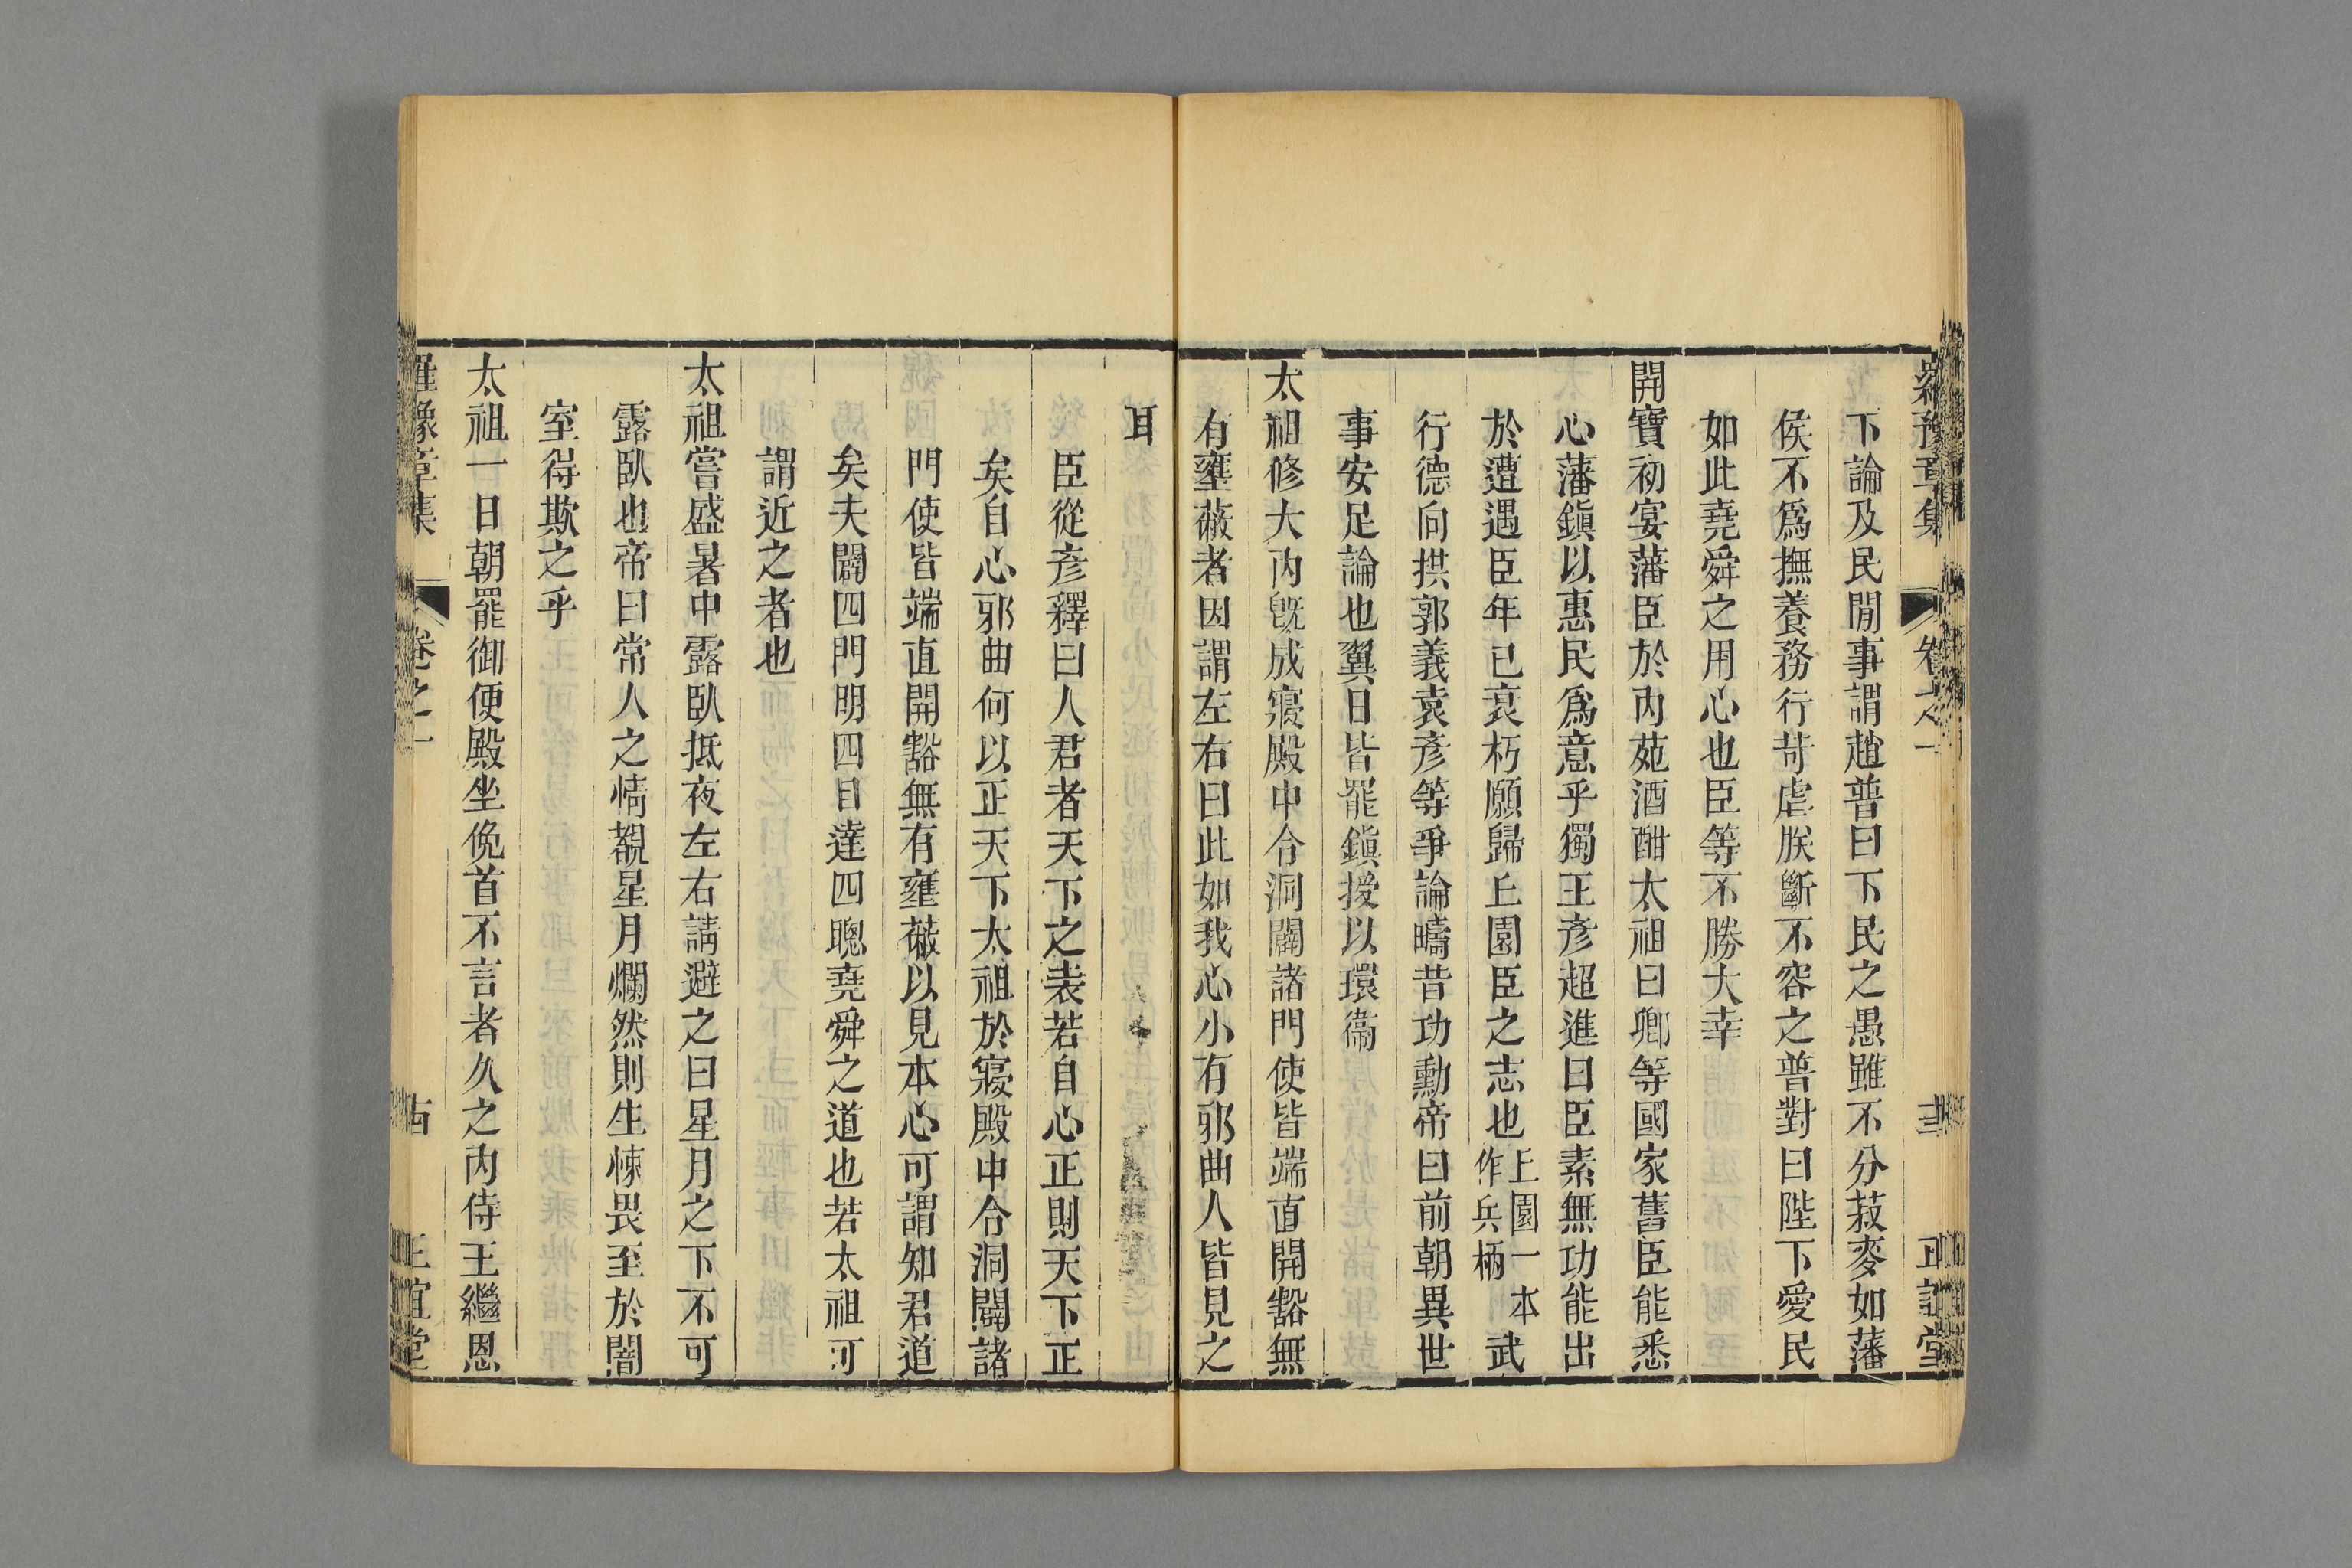 羅豫章集 卷之一 正誼堂
下論及民閒事謂趙普曰下民之愚雖不分菽麥如藩
侯不爲撫養務行苛虐朕斷不容之普對曰陛下愛民
如此堯舜之用心也臣等不勝大幸
開寶初宴藩臣於內苑酒酣太祖曰卿等國家舊臣能悉
心藩鎭以惠民爲意乎獨王彥超進曰臣素無功能出
於遭遇臣年已衰朽願歸丘園臣之志也丘園一本作兵柄武
行德向拱郭義袁彥等爭論疇昔功勳帝曰前朝異世
事安足論也翼日皆罷鎭授以環衞
太祖修大內旣成寢殿中合洞闢諸門使皆端直開豁無
有壅蔽者因謂左右曰此如我心小有邪曲人皆見之
耳
臣從彥釋曰人君者天下之表若自心正則天下正
矣自心邪曲何以正天下太祖於寢殿中合洞闢諸
門使皆端直開豁無有壅蔽以見本心可謂知君道
矣夫闢四門明四目達四聰堯舜之道也若太祖可
謂近之者也
太祖嘗盛暑中露臥抵夜左右請避之曰星月之下不可
露臥也帝曰常人之情覩星月爛然則生悚畏至於闇
室得欺之乎
太祖一日朝罷御便殿坐俛首不言者久之內侍王繼恩
羅豫章集 卷之一 正誼堂